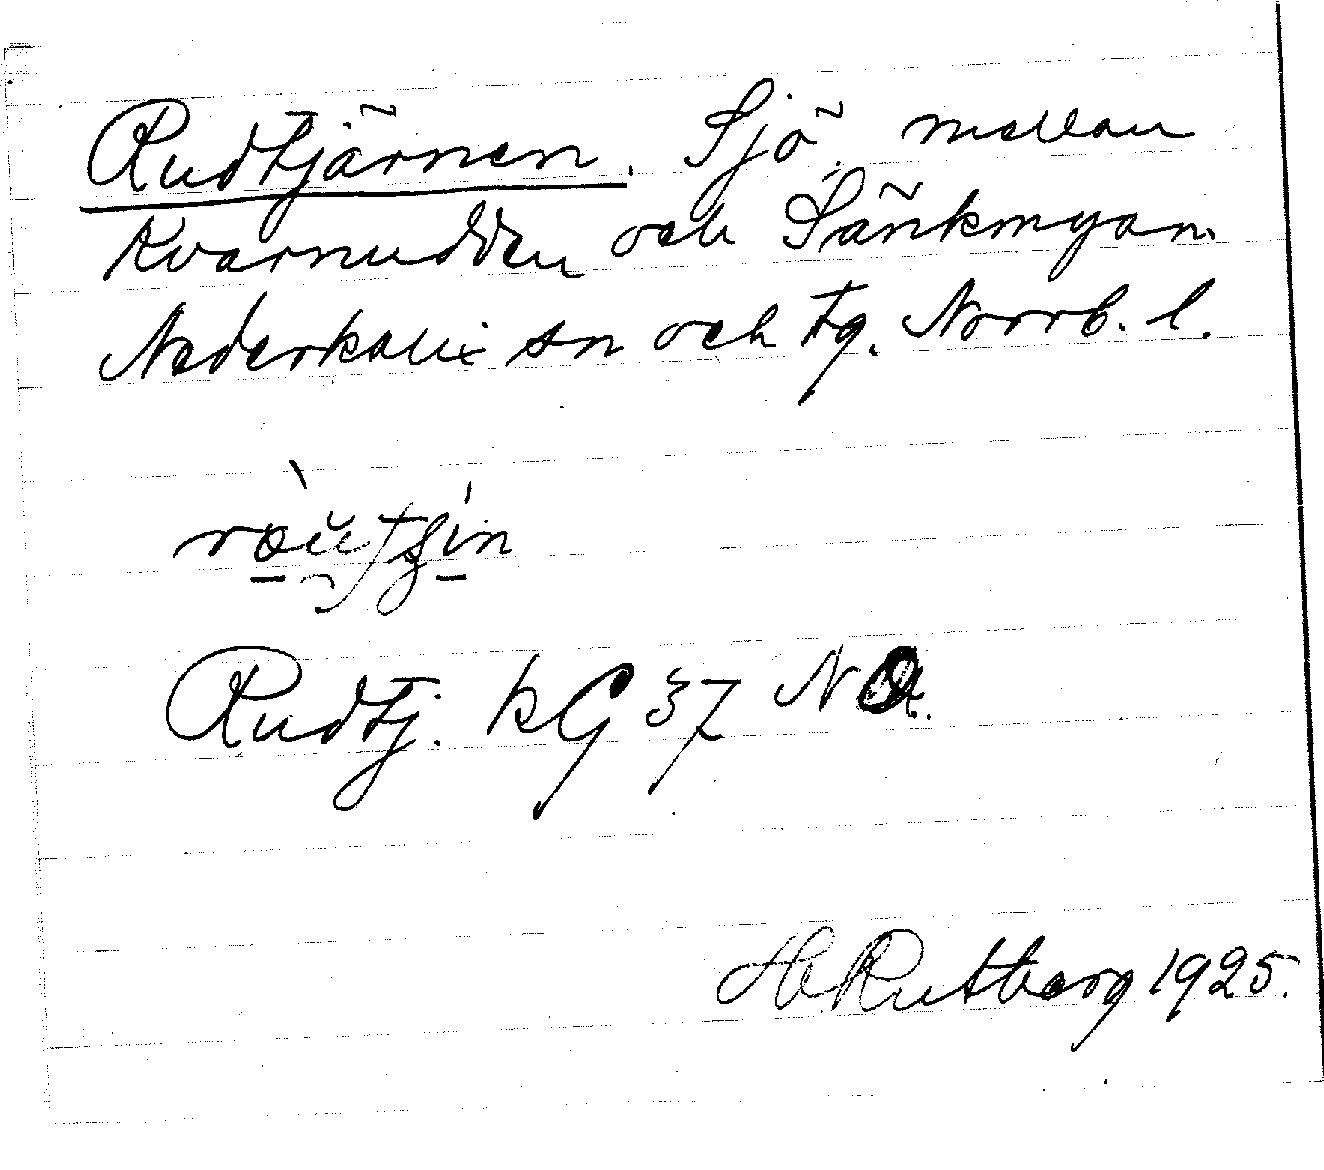 Rudtjärnen. Sjö mellan
Kvarnudden och Sänkmyan.
Nederkalix sn och tg. Norrb. l.
Rudtj. kG 37
H Rutberg 1925.